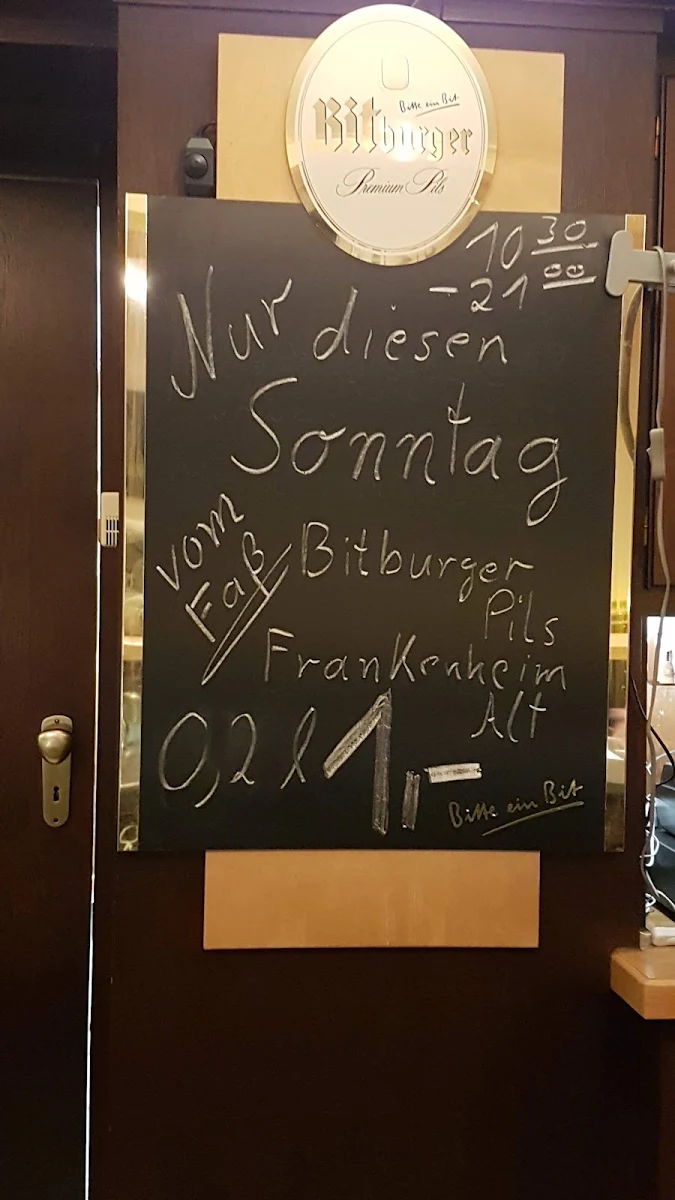 Bitte ein Bit
Bitburger
Premium Pils
10 30
- 21 00
Nur diesen
Sonntag
vom
Faß
Bitburger
Pils
Frankenheim
Alt
0,2 l 1,-
Bitte ein Bit